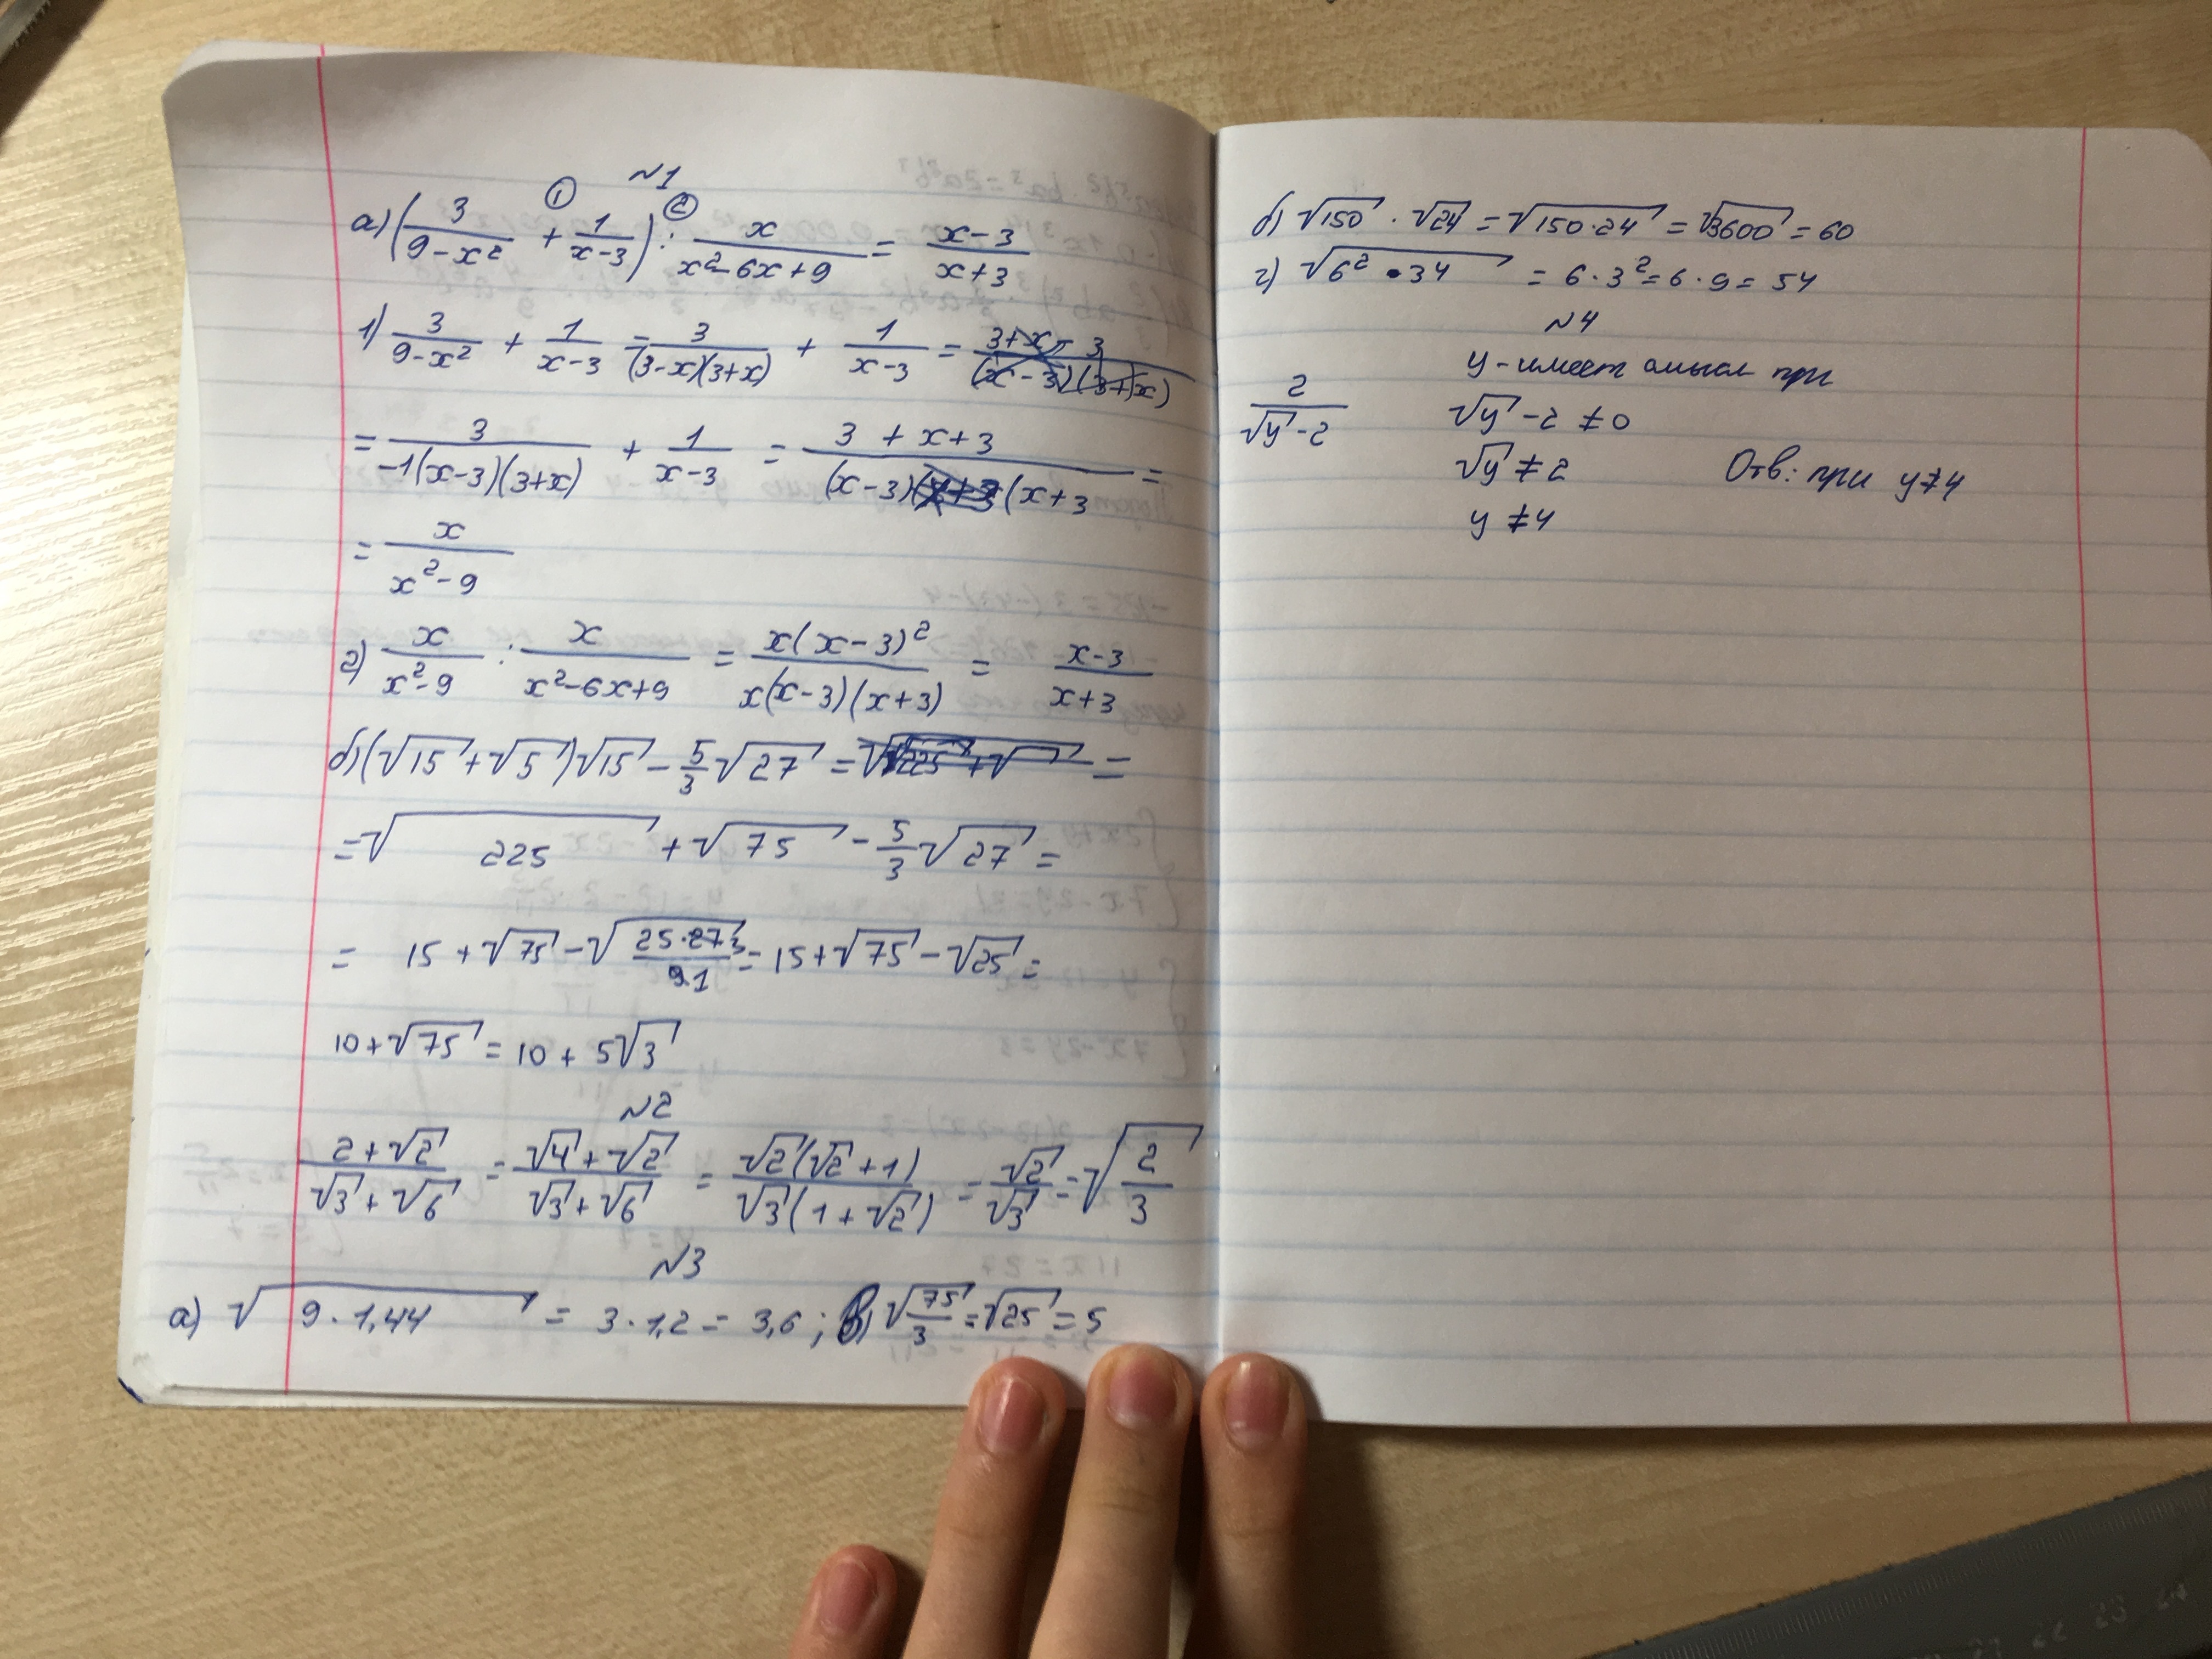 №1
а) (3/(9-x²) + 1/(x-3)) : x/(x²-6x+9) = (x-3)/(x+3)
① ②
1) 3/(9-x²) + 1/(x-3) = 3/((3-x)(3+x)) + 1/(x-3) =
= 3/(-1(x-3)(3+x)) + 1/(x-3) = (3 + x+3)/((x-3)(x+3 =
= x/(x²-9)
2) x/(x²-9) : x/(x²-6x+9) = x(x-3)²/(x(x-3)(x+3)) = (x-3)/(x+3)
б) (√15+√5)√15 - 5/3√27 = =
= √225 + √75 - 5/3√27 =
= 15 + √75 - √(25·27 3/9 1) = 15+√75 - √25 =
10+√75 = 10 + 5√3
№2
(2+√2)/(√3+√6) = (√4+√2)/(√3+√6) = √2(√2+1)/(√3(1+√2)) = √2/√3 = √(2/3)
№3
а) √(9·1,44) = 3·1,2 = 3,6 ; в) √(75/3) = √25 = 5
б) √150 · √24 = √(150·24) = √3600 = 60
г) √(6²·3⁴) = 6·3² = 6·9 = 54
№4
y - имеет смысл при
2/(√y-2) √y - 2 ≠ 0
√y ≠ 2 Отв: при y≠4
y ≠ 4